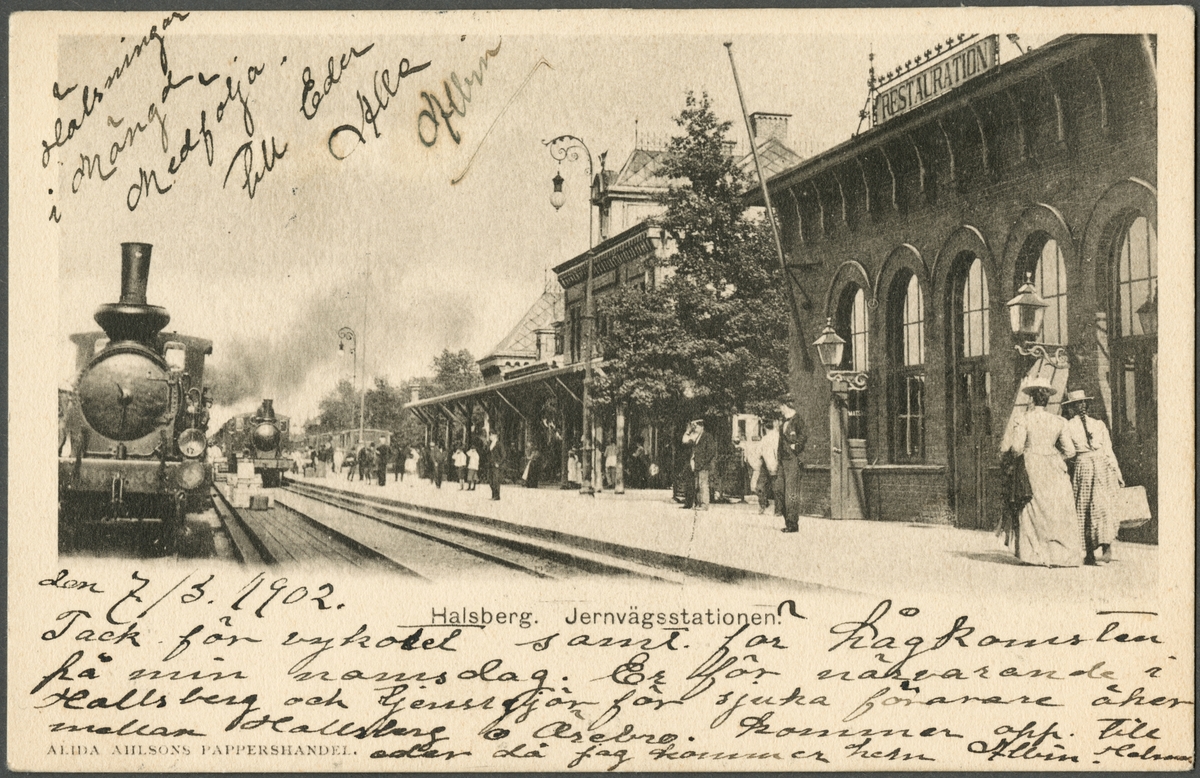 Hälsningar
i Mängd
Medfölja.
till Eder
Alla
Albin
RESTAURATION
den 7/3. 1902.
Halsberg. Jernvägsstationen.
Tack för vykotet samt for hågkomsten
på min namsdag. Er för närvarande i
Hallsberg och tjenstgjör för sjuka förarare åker
mellan Hallsberg o Örebro. Kommer opp. till
ALIDA AHLSONS PAPPERSHANDEL.
eder då jag kommer hem Albin